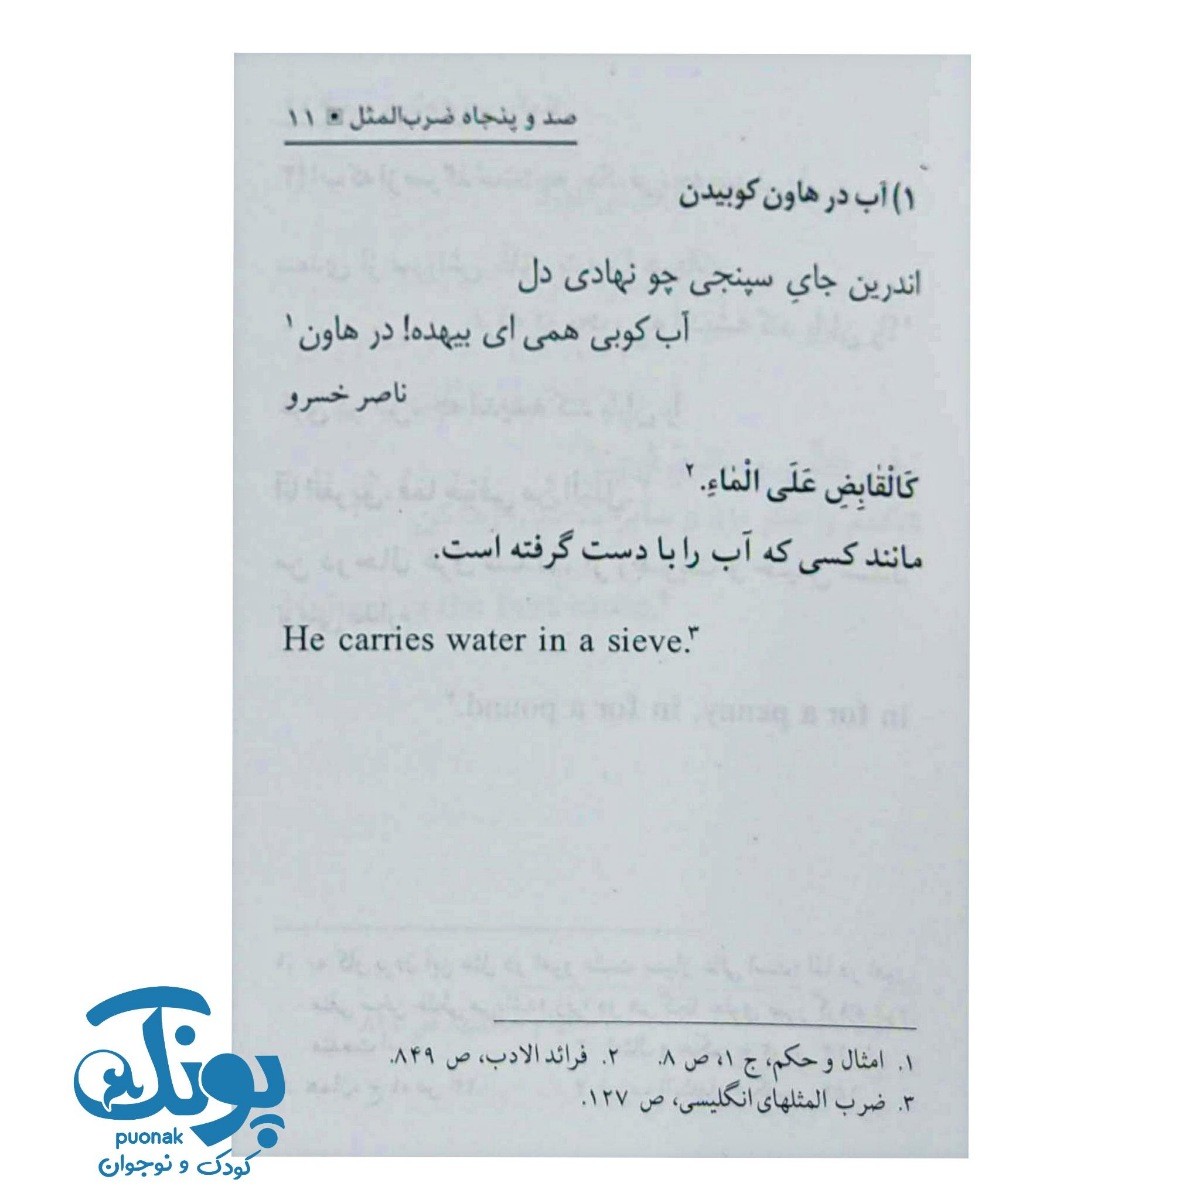 صد و پنجاه ضرب‌المثل ▣ ۱۱
۱) آب در هاون کوبیدن
اندرین جایِ سپنجی چو نهادی دل
آب کوبی همی ای بیهده! در هاون۱
ناصر خسرو
کَالْقٰابِضِ عَلَی الْمٰاءِ.۲
مانند کسی که آب را با دست گرفته است.
He carries water in a sieve.۳
in for a penny, in for a pound.
۱. امثال و حکم، ج ۱، ص ۸. ۲. فرائد الادب، ص ۸۴۹.
۳. ضرب المثلهای انگلیسی، ص ۱۲۷.
پونک
puonak
کودک و نوجوان